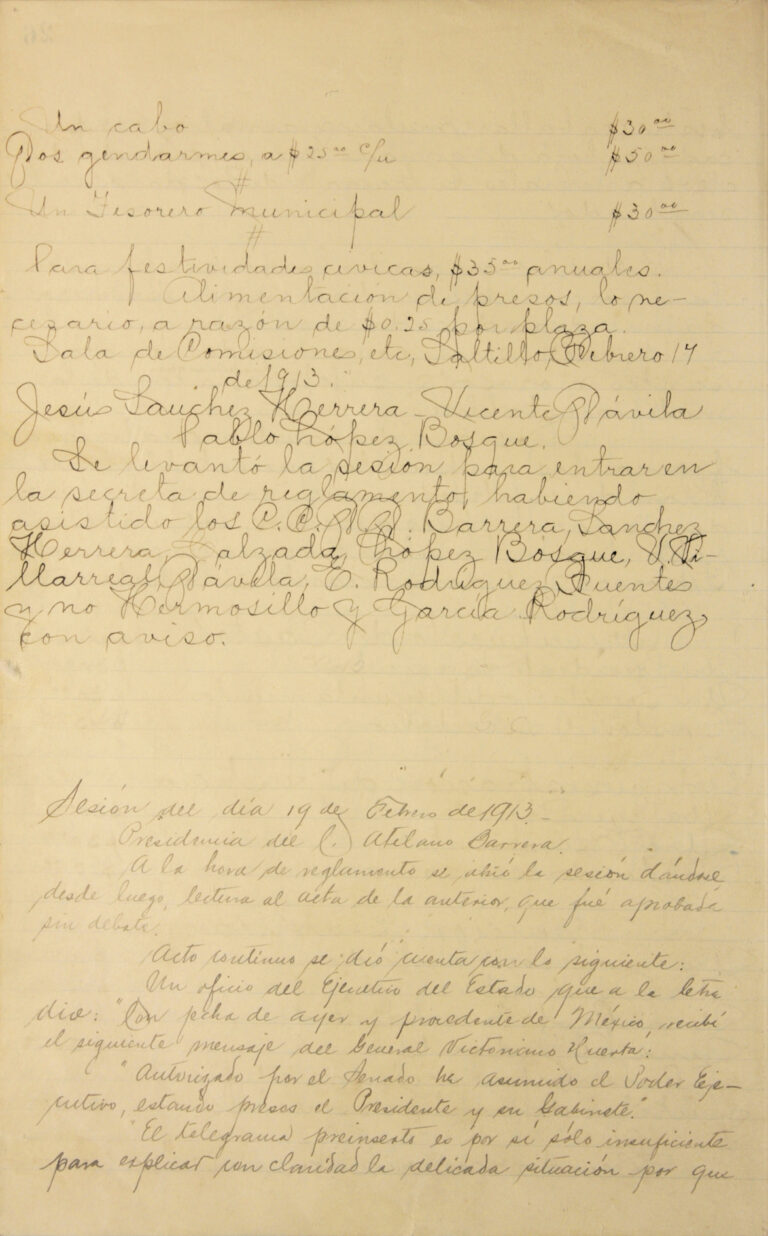 Un cabo $30.00
Dos gendarmes, a $25.00 c/u $50.00
Un Tesorero Municipal $30.00
Para festividades cívicas, $35.00 anuales.
Alimentación de presos, lo ne-
cezario, a razón de $0.25 por plaza.
Sala de Comisiones, etc, Saltillo, Febrero 17
de 1913.
Jesús Sanchez Herrera - Vicente Dávila
Pablo López Bosque.
Se levantó la sesión para entrar en
la secreta de reglamento, habiendo
asistido los C.C. Barrera, Sanchez
Herrera, Calzada, López Bosque, V. Vi-
llarreal, Dávila, E. Rodriguez, Fuentes
y no Hermosillo y García Rodríguez,
con aviso.
Sesión del día 19 de Febrero de 1913.-
Presidencia del C. Atilano Barrera.
A la hora de reglamento se abrió la sesión dándose
desde luego, lectura al acta de la anterior, que fué aprobada
sin debate.
Acto continuo se dió cuenta con lo siguiente:
Un oficio del Ejecutivo del Estado que a la letra
dice: "Con fecha de ayer y procedente de México, recibí
el siguiente mensaje del General Victoriano Huerta:
"Autorizado por el Senado he asumido el Poder Eje-
cutivo, estando presos el Presidente y su Gabinete."
"El telegrama preinserto es por sí sólo insuficiente
para explicar con claridad la delicada situación por que